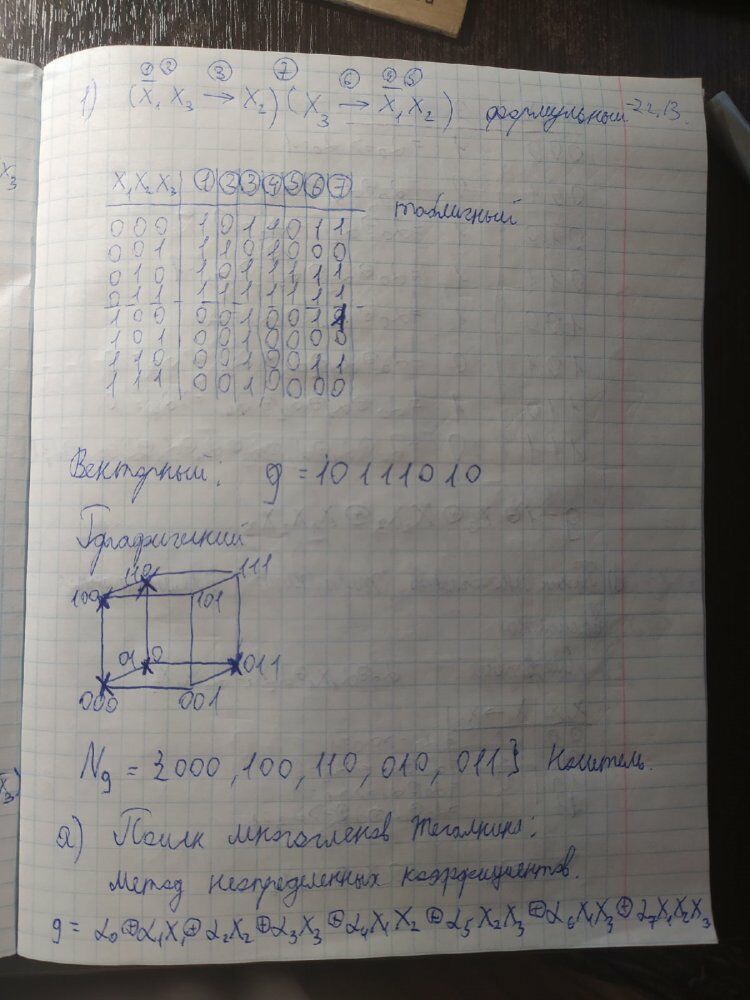 ① ② ③ ⑦ ⑥ ④ ⑤
1) (X̄₁ X₃ → X₂)(X₃ → X̄₁ X₂) формульный
X₁ X₂ X₃ ① ② ③ ④ ⑤ ⑥ ⑦ табличный
0 0 0 1 0 1 1 0 1 1
0 0 1 1 1 0 1 0 0 0
0 1 0 1 0 1 1 1 1 1
0 1 1 1 1 1 1 1 1 1
1 0 0 0 0 1 0 0 1
1 0 1 0 0 1 0 0 0 0
1 1 0 0 0 1 0 0 1 1
1 1 1 0 0 1 0 0 0 0
Векторный: g = 10111010
Графический
110 111
100 101
01 0 011
000 001
N_g = {000, 100, 110, 010, 011} Носитель.
2) Поиск многочленов Жегалкина:
Метод неопределенных коэффициентов.
g = α₀ ⊕ α₁X₁ ⊕ α₂X₂ ⊕ α₃X₃ ⊕ α₄X₁X₂ ⊕ α₅X₂X₃ ⊕ α₆X₁X₃ ⊕ α₇X₁X₂X₃